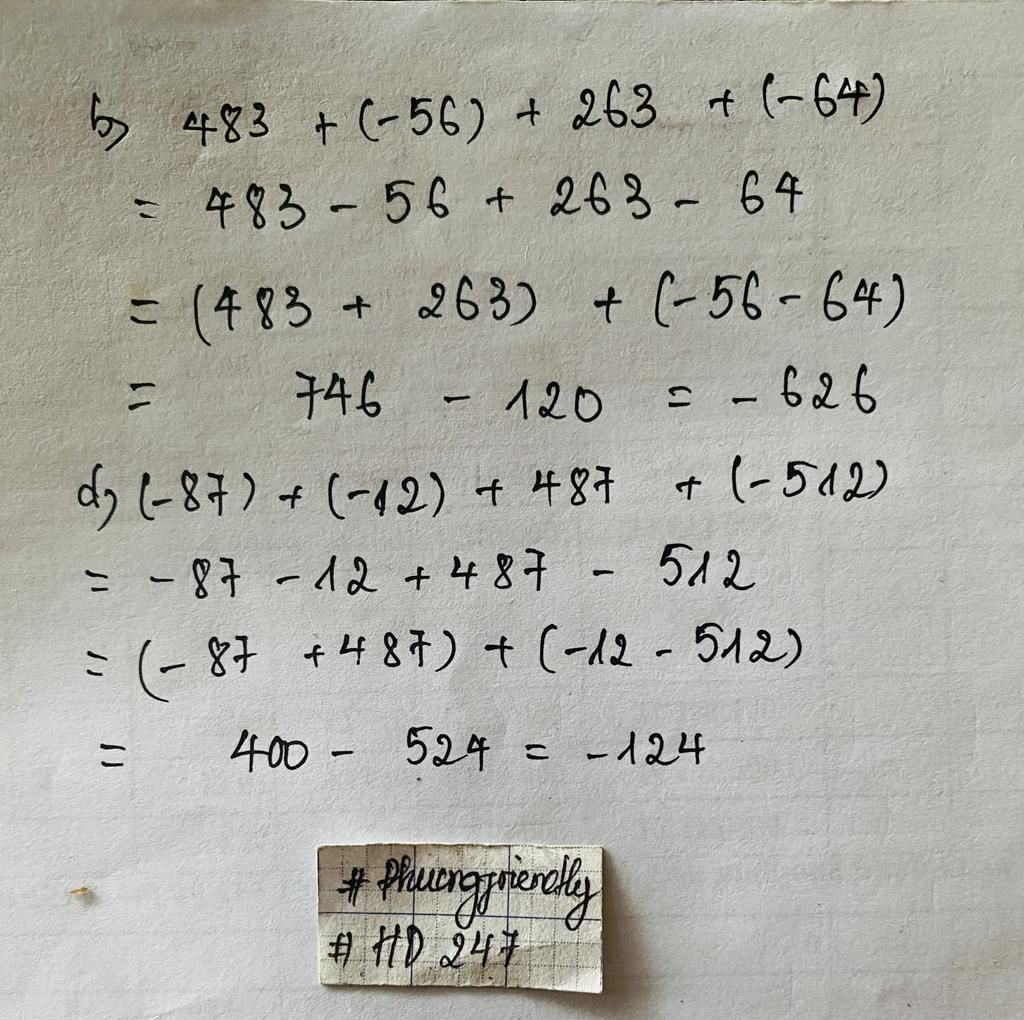 b) 483 + (-56) + 263 + (-64)
= 483 - 56 + 263 - 64
= (483 + 263) + (-56 - 64)
= 746 - 120 = - 626
d) (-87) + (-12) + 487 + (-512)
= - 87 - 12 + 487 - 512
= (- 87 + 487) + (-12 - 512)
= 400 - 524 = -124
# Phuongfriendly
# HD 247